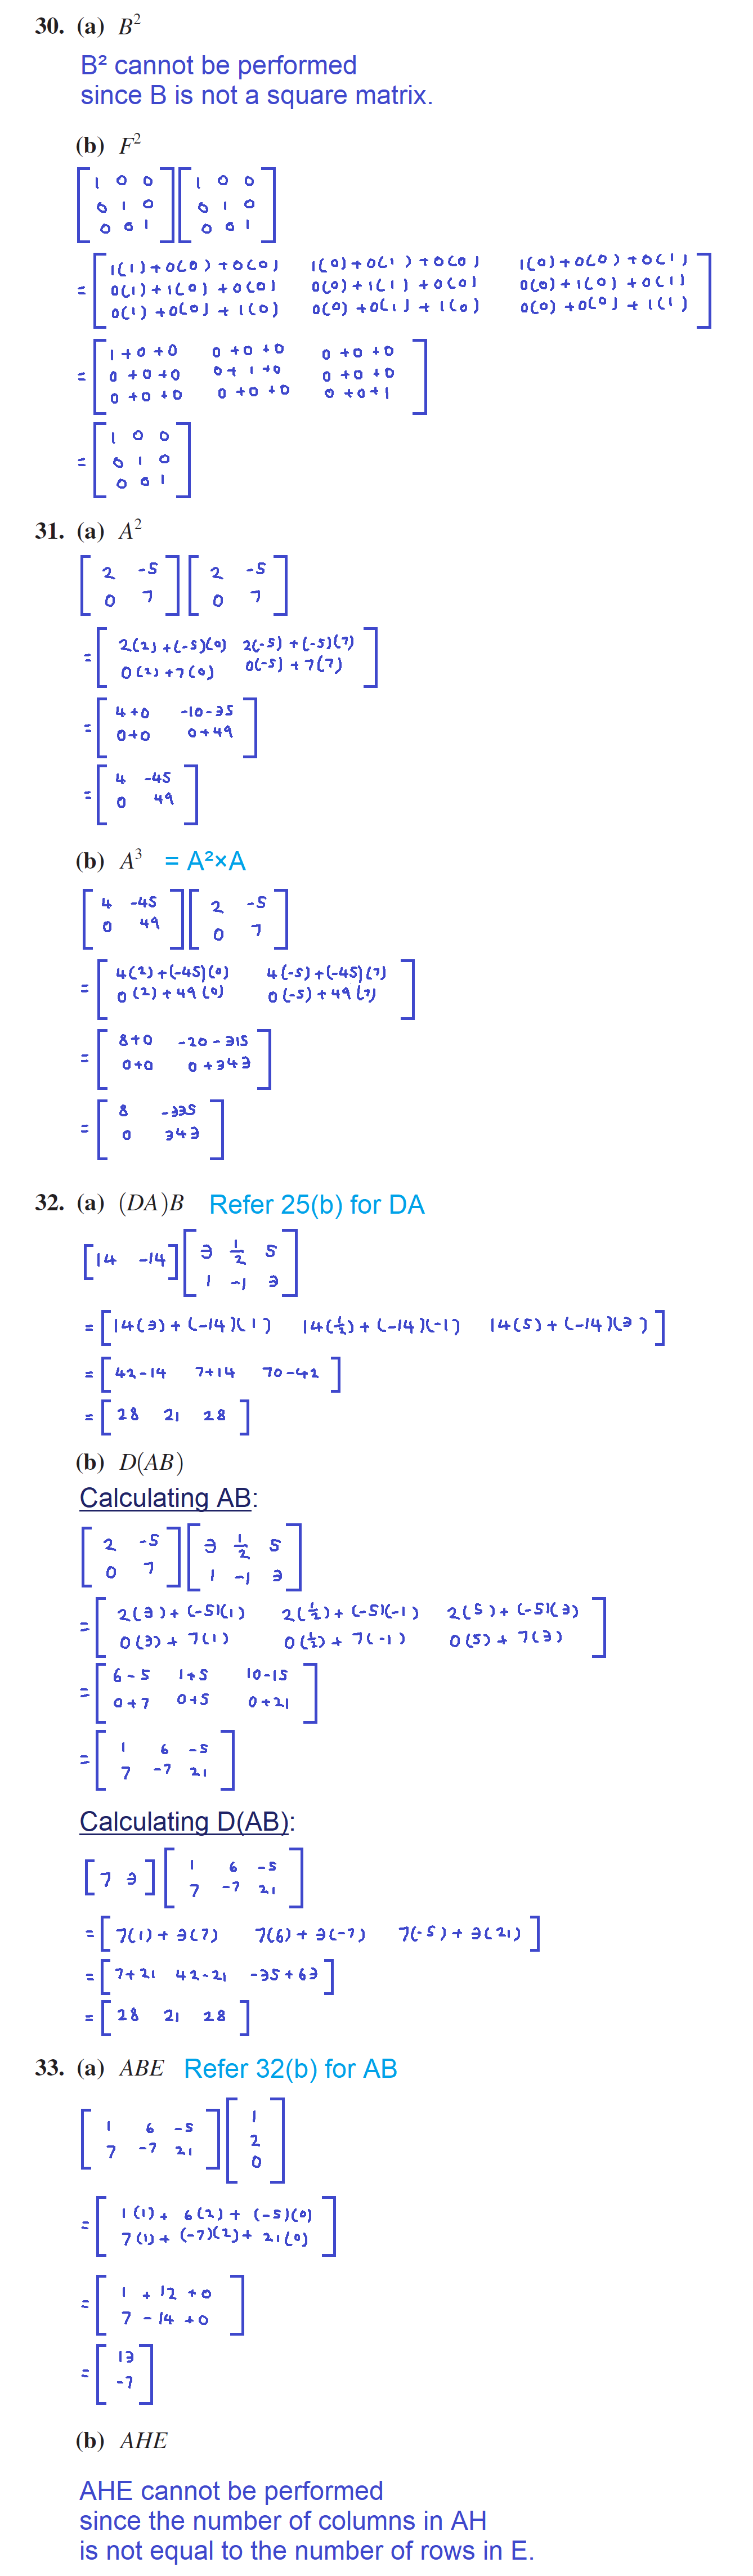 30. (a) B²
B² cannot be performed
since B is not a square matrix.
(b) F²
[1 0 0] [1 0 0]
[0 1 0] [0 1 0]
[0 0 1] [0 0 1]
= [1(1)+0(0)+0(0) 1(0)+0(1)+0(0) 1(0)+0(0)+0(1)]
[0(1)+1(0)+0(0) 0(0)+1(1)+0(0) 0(0)+1(0)+0(1)]
[0(1)+0(0)+1(0) 0(0)+0(1)+1(0) 0(0)+0(0)+1(1)]
= [1+0+0 0+0+0 0+0+0]
[0+0+0 0+1+0 0+0+0]
[0+0+0 0+0+0 0+0+1]
= [1 0 0]
[0 1 0]
[0 0 1]
31. (a) A²
[2 -5] [2 -5]
[0 7] [0 7]
= [2(2)+(-5)(0) 2(-5)+(-5)(7)]
[0(2)+7(0) 0(-5)+7(7)]
= [4+0 -10-35]
[0+0 0+49]
= [4 -45]
[0 49]
(b) A³ = A²×A
[4 -45] [2 -5]
[0 49] [0 7]
= [4(2)+(-45)(0) 4(-5)+(-45)(7)]
[0(2)+49(0) 0(-5)+49(7)]
= [8+0 -20-315]
[0+0 0+343]
= [8 -335]
[0 343]
32. (a) (DA)B Refer 25(b) for DA
[14 -14] [3 1/2 5]
[1 -1 3]
= [14(3)+(-14)(1) 14(1/2)+(-14)(-1) 14(5)+(-14)(3)]
= [42-14 7+14 70-42]
= [28 21 28]
(b) D(AB)
Calculating AB:
[2 -5] [3 1/2 5]
[0 7] [1 -1 3]
= [2(3)+(-5)(1) 2(1/2)+(-5)(-1) 2(5)+(-5)(3)]
[0(3)+7(1) 0(1/2)+7(-1) 0(5)+7(3)]
= [6-5 1+5 10-15]
[0+7 0+5 0+21]
= [1 6 -5]
[7 -7 21]
Calculating D(AB):
[7 3] [1 6 -5]
[7 -7 21]
= [7(1)+3(7) 7(6)+3(-7) 7(-5)+3(21)]
= [7+21 42-21 -35+63]
= [28 21 28]
33. (a) ABE Refer 32(b) for AB
[1 6 -5] [1]
[7 -7 21] [2]
[0]
= [1(1)+6(2)+(-5)(0)]
[7(1)+(-7)(2)+21(0)]
= [1+12+0]
[7-14+0]
= [13]
[-7]
(b) AHE
AHE cannot be performed
since the number of columns in AH
is not equal to the number of rows in E.